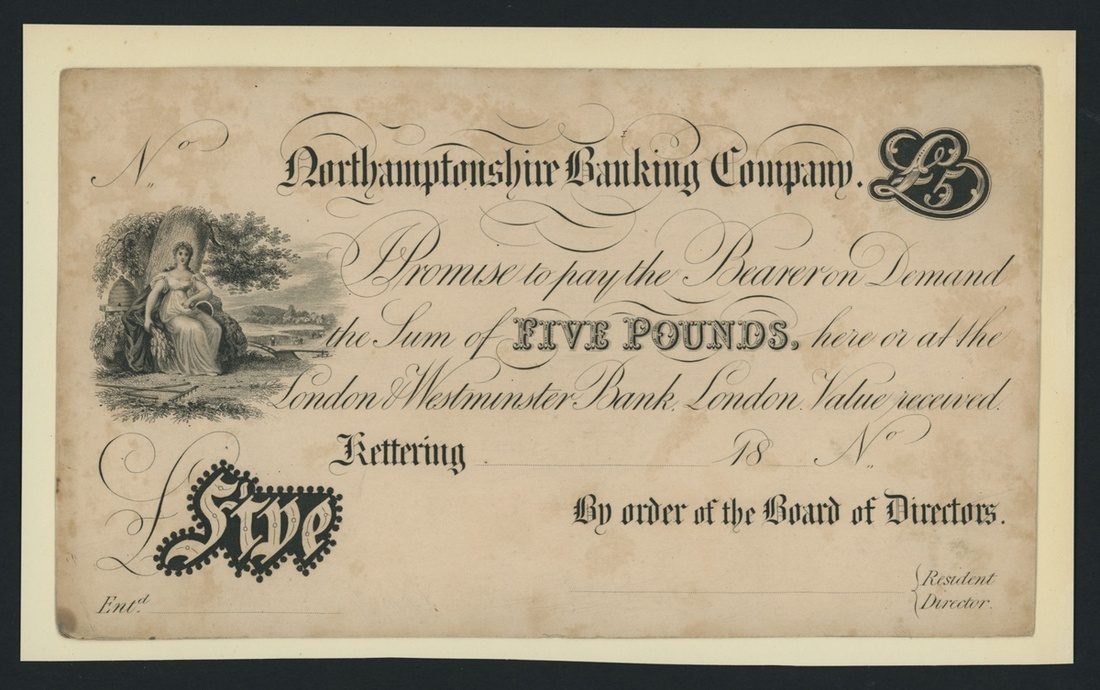 No
Northamptonshire Banking Company. £5
I Promise to pay the Bearer on Demand
the Sum of FIVE POUNDS, here or at the
London & Westminster Bank, London. Value received.
Kettering 18 No
£Five
By order of the Board of Directors.
Entd. Resident
Director.